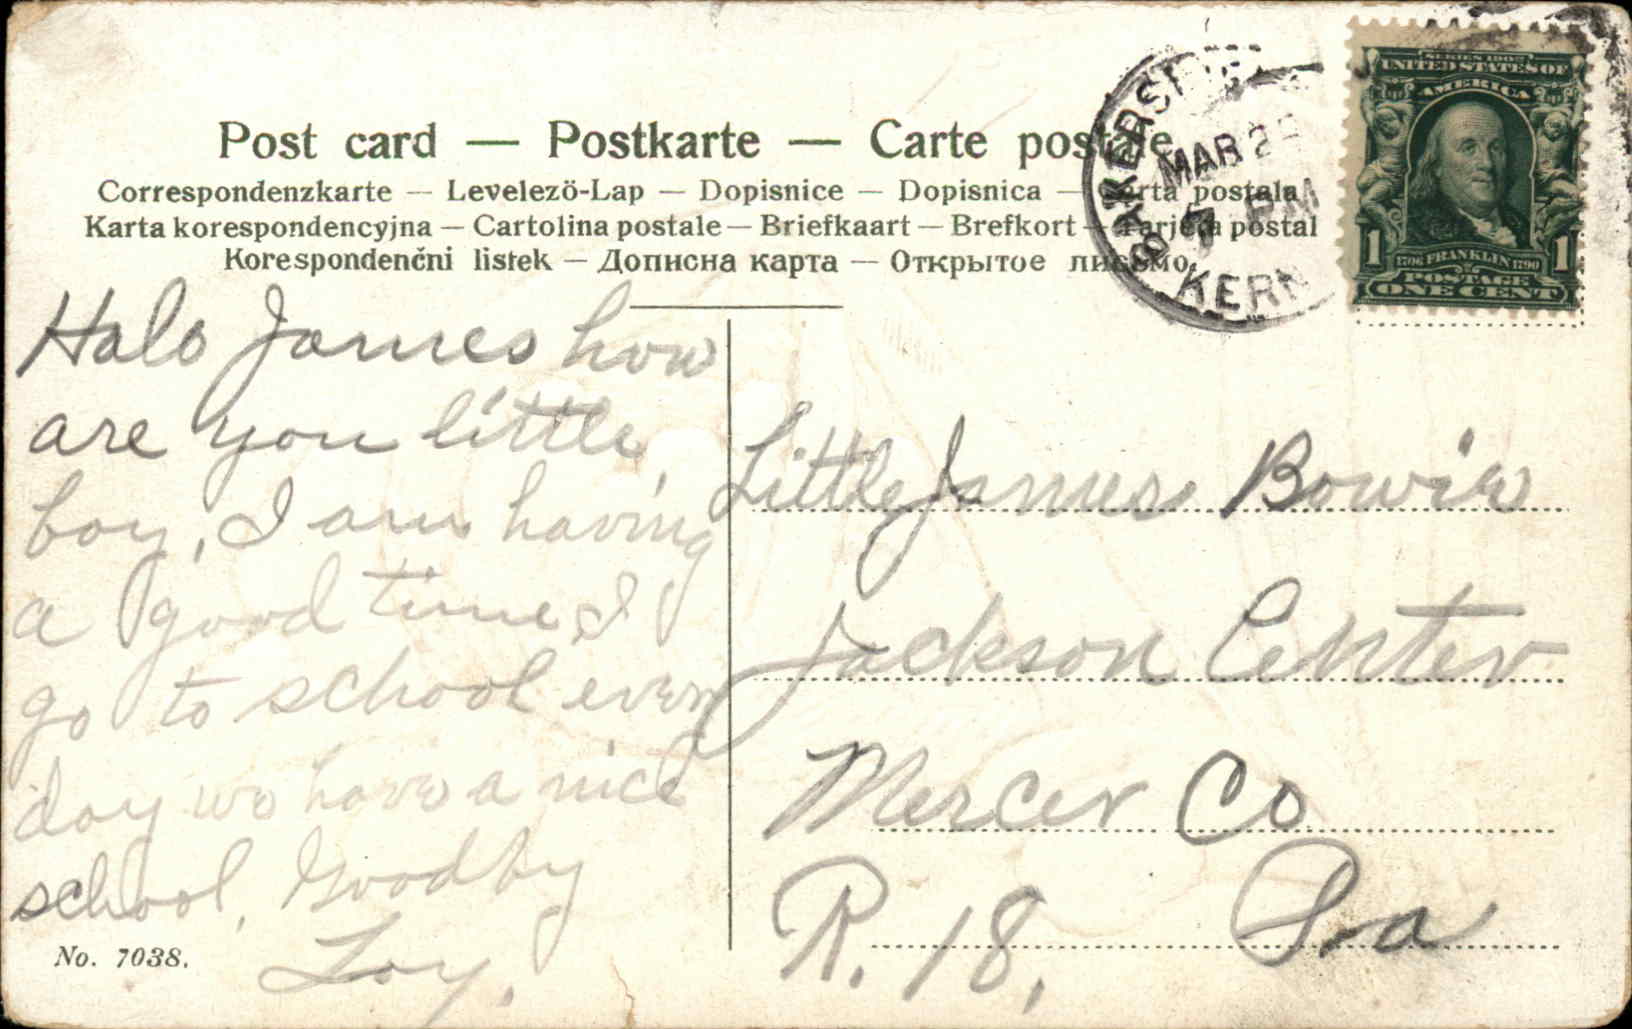 Post card — Postkarte — Carte postale
Correspondenzkarte — Levelezö-Lap — Dopisnice — Dopisnica — Karta postala
Karta korespondencyjna — Cartolina postale — Briefkaart — Brefkort — Tarjeta postal
Korespondenčni listek — Дописна карта — Открытое письмо
BAKERSF
MAR 2
7 PM
KERN
SERIES 1902
UNITED STATES OF
AMERICA
1 1706 FRANKLIN 1790 1
POSTAGE
ONE CENT
Halo James how
are you little
boy, I am having
a good time, I
go to school every
day we have a nice
school, Goodby
Loy.
Little James Bowie
Jackson Center
Mercer Co
R. 18, Pa
No. 7038.